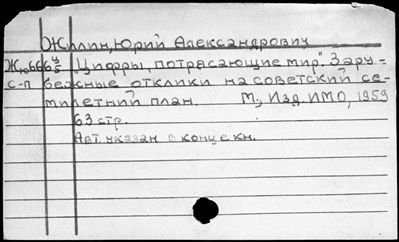 Жилин, Юрий Александрович
"Цифры, потрясающие мир". Зару-
бежные отклики на советский се-
с-п
милетний план. М., Изд. ИМО, 1959
63 стр.
Авт. указан в конце кн.